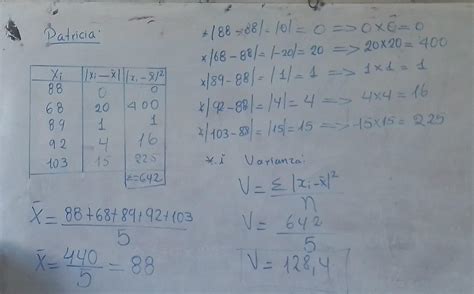 Patricia:
Xi | |xi-x̄| | |xi-x̄|²
88 | 0 | 0
68 | 20 | 400
89 | 1 | 1
92 | 4 | 16
103 | 15 | 225
Σ=642
X̄ = 88+68+89+92+103
5
X̄ = 440/5 = 88
*|88-88|=|0|=0 => 0x0=0
*|68-88|=|-20|=20 => 20x20=400
*|89-88|=|1|=1 => 1x1=1
*|92-88|=|4|=4 => 4x4=16
*|103-88|=|15|=15 => 15x15=225
Varianza:
V = Σ|xi-x̄|²
n
V = 642
5
V = 128,4